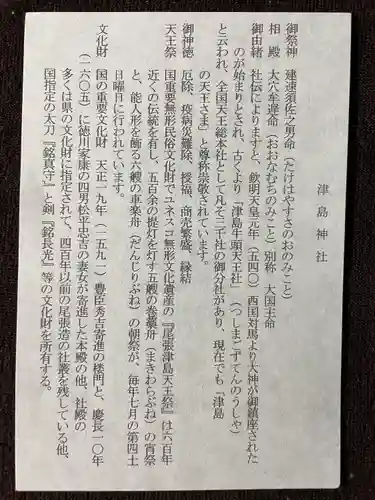 津島神社
御祭神　建速須佐之男命（たけはやすさのおのみこと）
相殿　大穴牟遅命（おおなむちのみこと）別称　大国主命
御由緒　社伝によりますと、欽明天皇元年（五四〇）西国対馬より大神が御鎮座された
のが始まりとされ、古くより「津島牛頭天王社」（つしまごずてんのうしゃ）
と云われ、全国天王総本社として凡そ三千社の御分社があり、現在でも「津島
の天王さま」と尊称崇敬されています。
御神徳　厄除、疫病災難除、授福、商売繁盛、縁結
天王祭　国重要無形民俗文化財でユネスコ無形文化遺産の『尾張津島天王祭』は六百年
近くの伝統を有し、五百余の提灯を灯す五艘の巻藁舟（まきわらぶね）の宵祭
と、能人形を飾る六艘の車楽舟（だんじりぶね）の朝祭が、毎年七月の第四土
日曜日に行われています。
文化財　国の重要文化財　天正一九年（一五九一）豊臣秀吉寄進の楼門と、慶長一〇年
（一六〇五）に徳川家康の四男松平忠吉の妻女が寄進した本殿の他、社殿の
多くは県の文化財に指定されて、四百年以前の尾張造の社叢を残している他、
国指定の太刀『銘真守』と剣『銘長光』等の文化財を所有する。